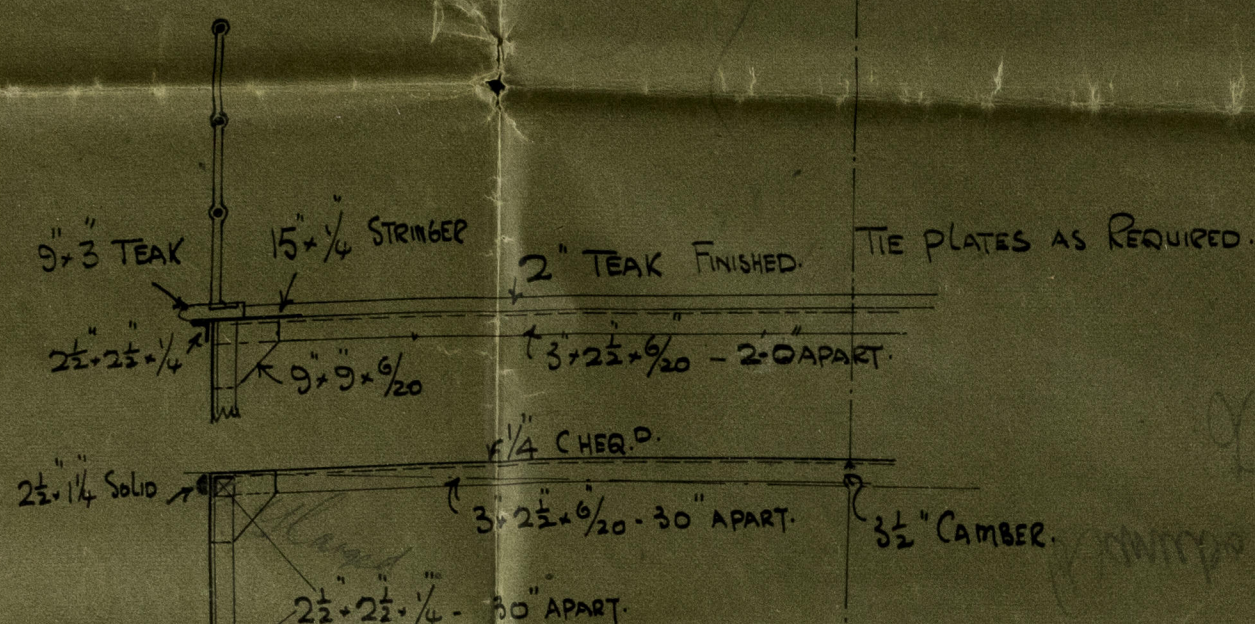 9" × 3" TEAK
15" × 1/4" STRINGER
2" TEAK FINISHED.
TIE PLATES AS REQUIRED.
2 1/2" × 2 1/2" × 1/4"
9" × 9" × 6/20
3" × 2 1/2" × 6/20 - 2'-0" APART.
1/4" CHEQ.D.
2 1/2" × 1 1/4" SOLID
3" × 2 1/2" × 6/20 - 30" APART.
3 1/2" CAMBER.
2 1/2" × 2 1/2" × 1/4" - 30" APART.